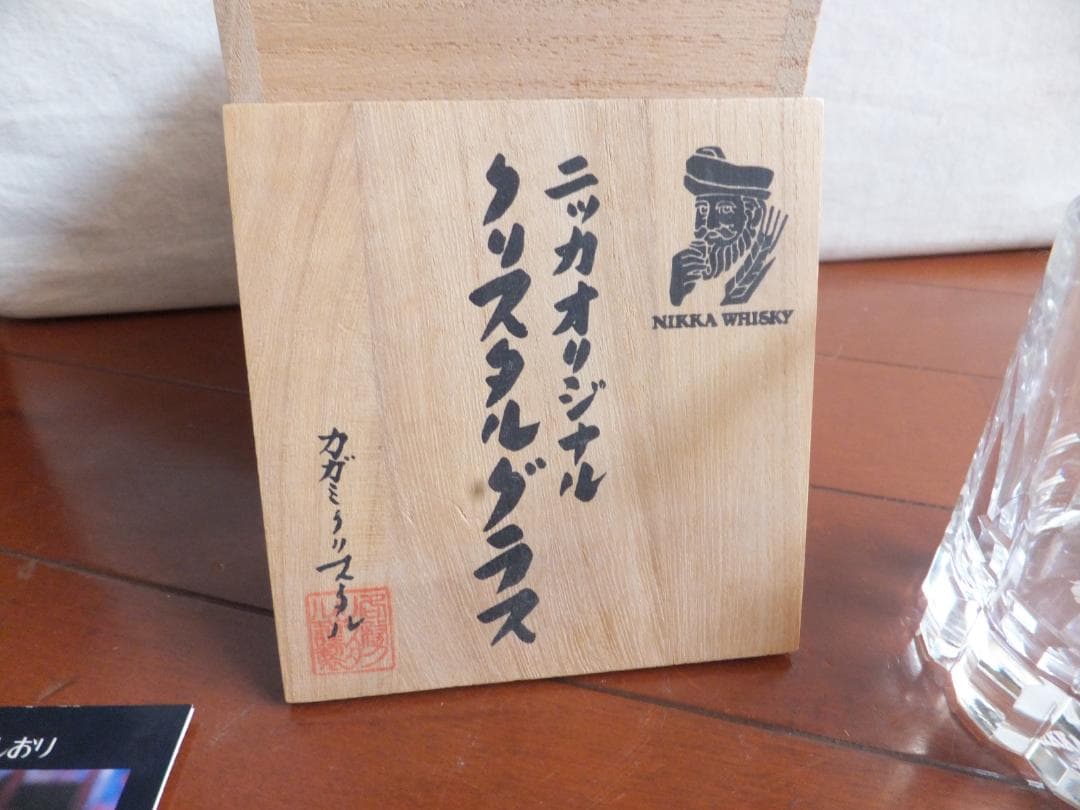 NIKKA WHISKY
ニッカオリジナル
クリスタルグラス
カガミクリスタル
しおり